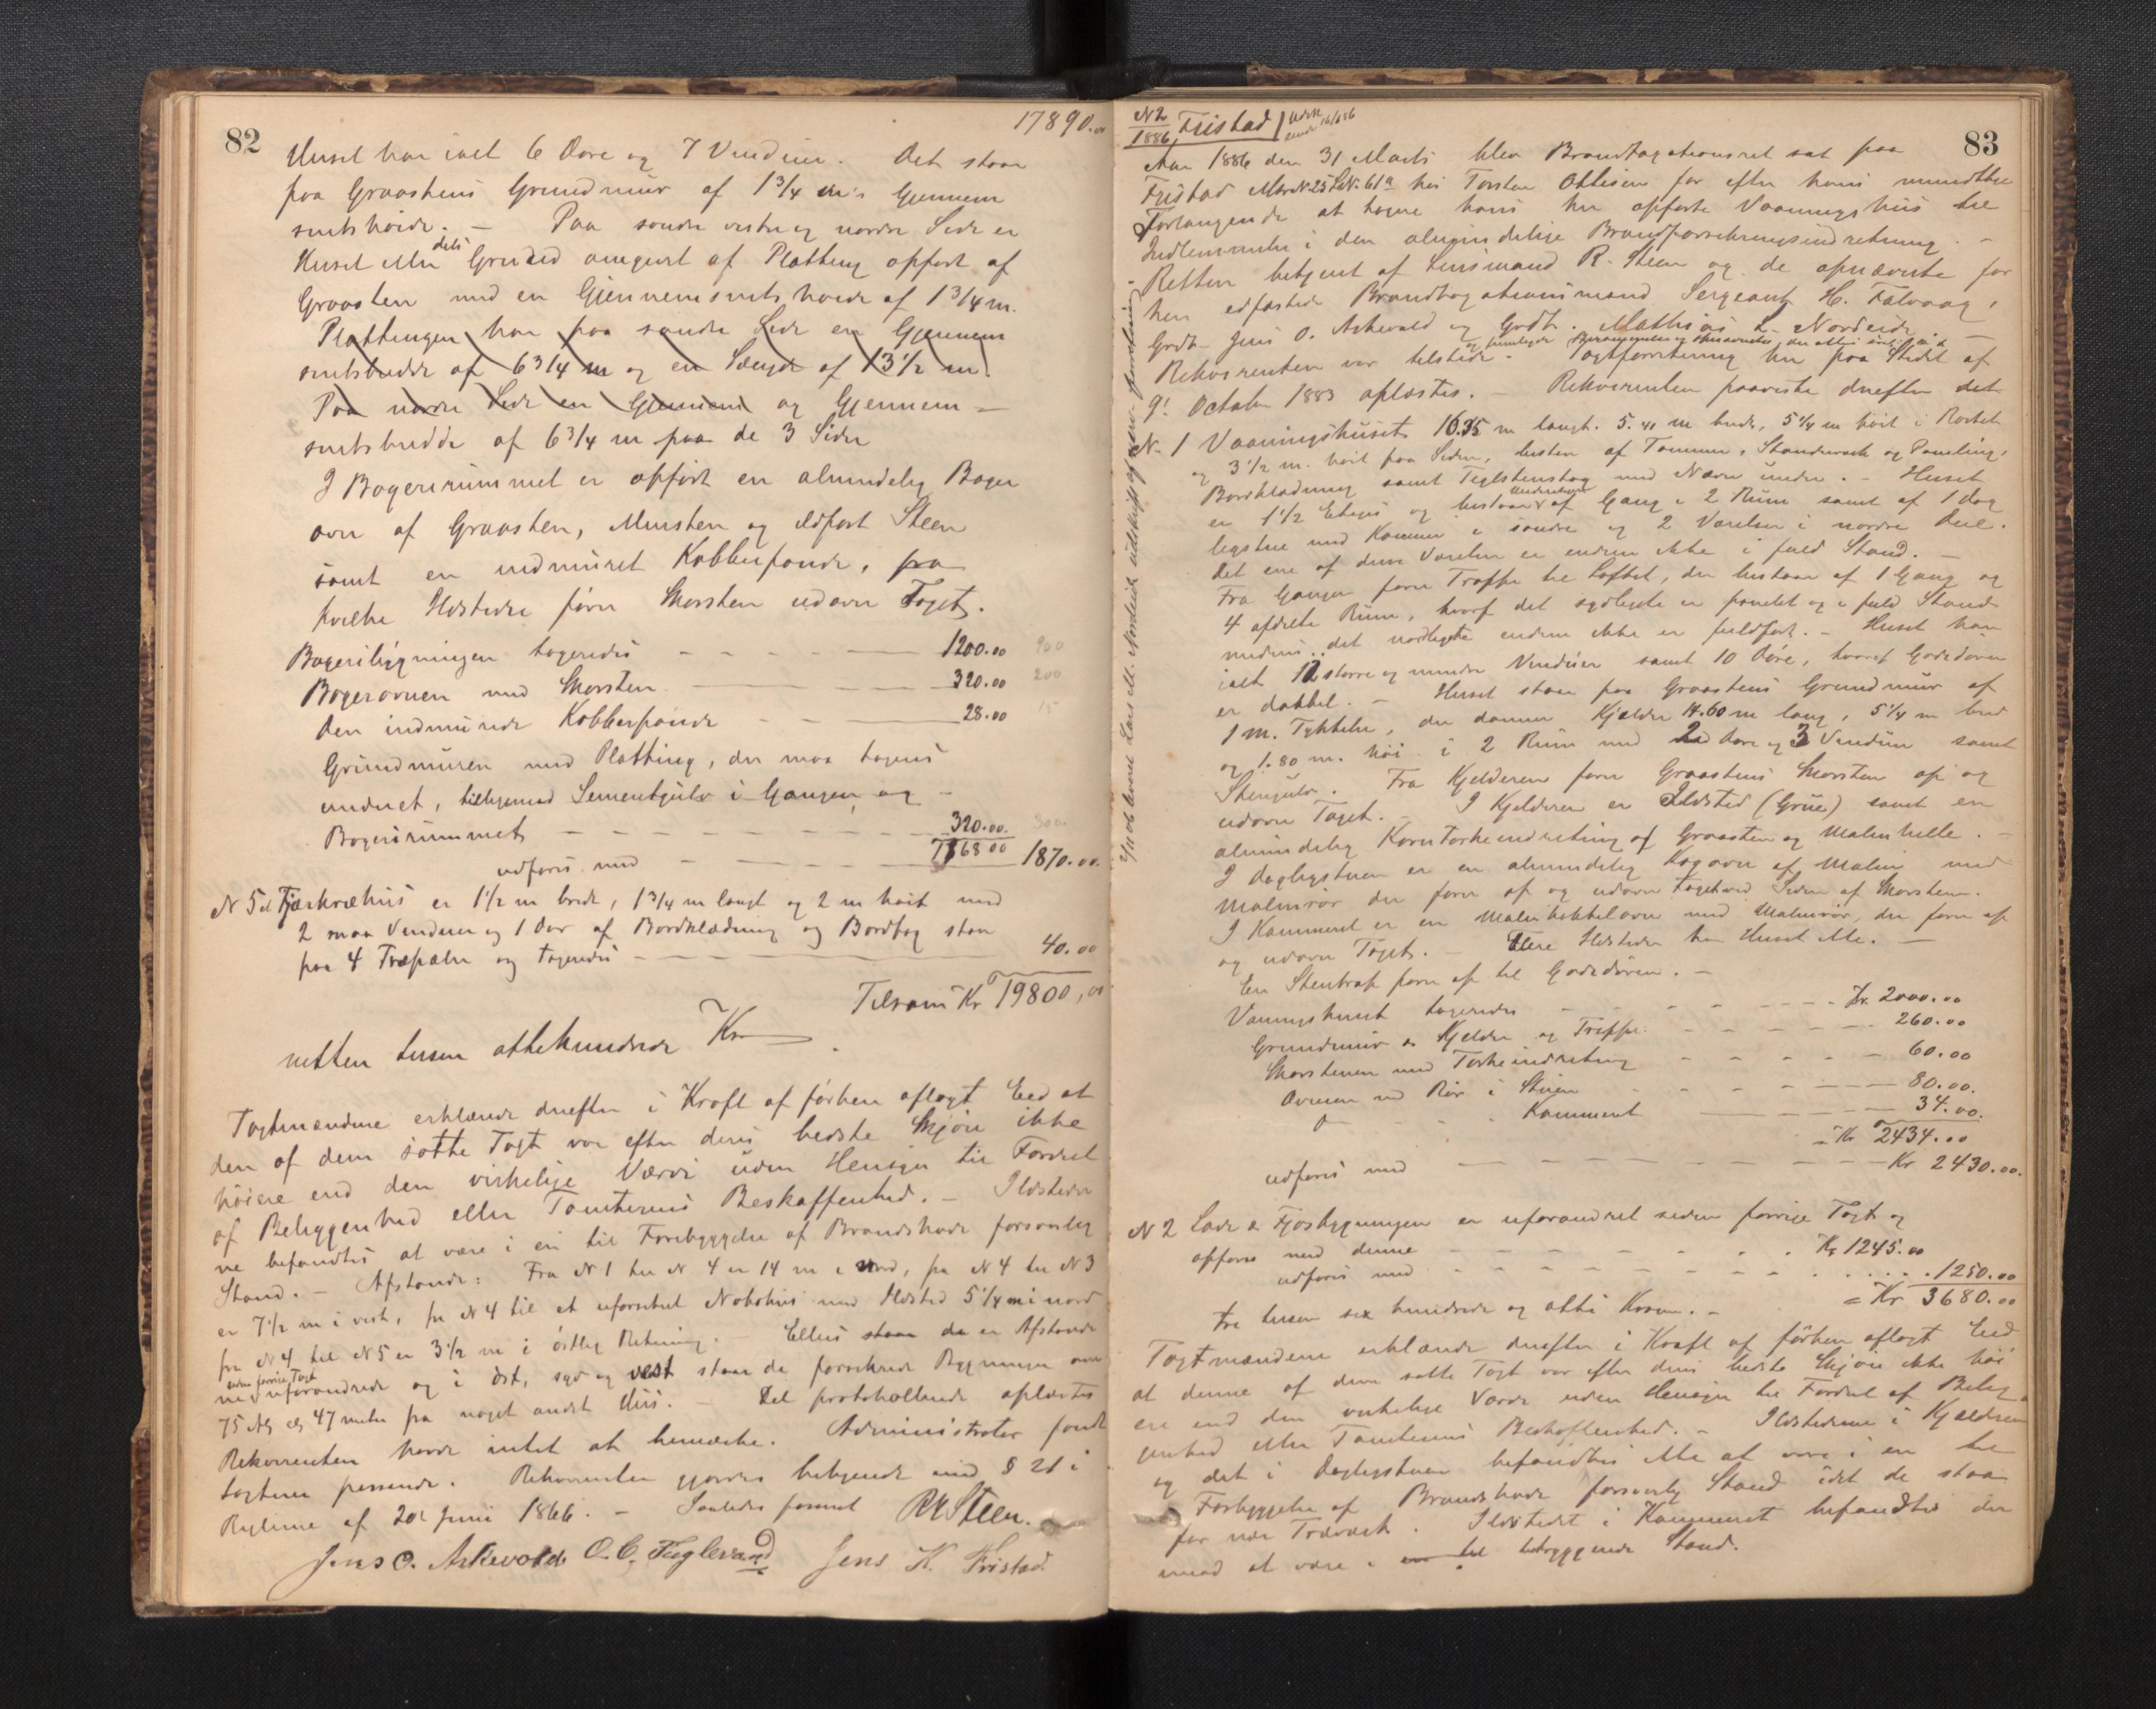 82
17890.00
Huset har ialt 6 Døre og 7 Vinduer. Det staar
paa Graastens Grundmuur af 1 3/4 m's Gjennem
snitshøide. – Paa søndre vestre og nordre Side er
Huset eller dets Grund omgivet af Platting opført af
Graasten med en Gjennemsnits høide af 1 3/4 m.
Plattingen har paa søndre Side en Gjennem
snitsbredde af 6 3/4 m og en Længde af 13 1/2 m.
Paa nordre Side en Gjennem og Gjennem-
snitsbredde af 6 3/4 m paa de 3 Sider
I Bagerirummet er opført en almindelig Bager
ovn af Graasten, Mursten og ildfast Steen
samt en indmuret Kobberpande, fra
hvilke Ildsteder fører Skorsten udover Taget.
Bageribygningen taxeredes – – – – 1200.00 900
Bagerovnen med Skorsten – – – 320.00 200
Den indmurede Kobberpande – – – 28.00 15
Grundmuren med Platting, der maa tages
under et, tilligemed Sementgulv i Gangen og
Bagerirummet – – – – 320.00. 300
1868 00
udføres med – – – 1870.00.
N 5 et Fjærkræhus er 1 1/2 m bredt, 1 3/4 m langt og 2 m høit med
2 smaa Vinduer og 1 Dør af Bordklædning og Bordtag staar
paa 4 Træpæler og taxeredes – – – 40.00
Tilsam Kr 19800,00
nitten tusen ottehundrede Kr.
Taxtmændene erklærede derefter i Kraft af førhen aflagt Eed at
den af dem satte Taxt var efter deres bedste Skjøn ikke
høiere end den virkelige Værdi uden Hensyn til Fordel
af Beliggenhed eller Tomternes Beskaffenhed. – Ildstederne
befandtes at være i en til Forebyggelse af Brandskade forsvarlig
Stand. – Afstande: Fra N 1 til N 4 er 14 m i Nord, fra N 4 til N 3
er 7 1/2 m i vest, fra N 4 til et uforsikret Nabohus med Ildsted 5 1/4 m i nord
fra N 4 til N 5 er 3 1/2 m i østlig Retning. – Ellers staar de er Afstande
ne siden forrige Taxt uforandrede og i øst, syd og vest staar de forsikrede Bygninger over
75 Al. el. 47 meter fra noget andet Hus. – Det protokollerede oplæstes
Rekvirenten havde intet at bemærke. Administrator fandt
taxten passende. Rekvirenten gjordes bekjendt med § 21 i
Reglerne af 20de Juni 1866. – Saaledes passeret R Steen.
Jens O. Askevold O. C. Fuglevand Jens K. Fristad
83
N 2
1886 Fristad / Udsk.
Aar 1886 den 31 Marts blev Brandtaxationsret sat paa
Fristad Matr N. 25 L N. 61a hos Torsten Ottesen for efter hans mundtlige
Forlangende at taxere hans her opførte Vaaningshus til
Indlemmelse i den almindelige Brandforsikringsindretning. –
Retten betjent af Lensmand R. Steen og de opnævnte før
hen edfæstede Brandtaxationsmænd Sergeant H. Falvaag,
Grdb. Jens O. Askevold og Grdb. Mathias L. Nordeide. –
Rekvirenten var tilstede. – Taxtforretning her paa Stedet af
9de October 1883 oplæstes. – Rekvirenten paaviste derefter det
N. 1 Vaaningshuset 16.35 m langt. 5.41 m bredt, 5 1/4 m høit i Røstet
og 3 1/2 m. høit paa Siden, bestaar af Tømmer, Standværk og Paneling,
Bordklædning samt Teglstenstag med Næver under. – Huset
er 1 1/2 Etages og bestaar underetagen af Gang i 2 Rum samt af 1 dag
ligstue med Kammer i søndre og 2 Værelser i nordre Deel.
Det ene af disse Værelser er endnu ikke i fuld Stand. –
Fra Gangen fører Trappe til Loftet, der bestaar af 1 Gang og
4 afdelte Rum, hvoraf det sydligste er panelet og i fuld Stand
medens det nordligste endnu ikke er fuldført. – Huset har
ialt 12 større og mindre Vinduer samt 10 Døre, hvoraf Gadedøren
er dobbel. – Huset staar paa Graastens Grundmuur af
1 m. Tykkelse, der danner Kjælder 14.60 m lang, 5 1/4 m bred
og 1.80 m. høi i 2 Rum med 2 Døre og 3 Vinduer samt
Stengulv. Fra Kjelderen fører Graastens Skorsten op og
udover Taget. – I Kjelderen er Ildsted (Grue) samt en
almindelig Korntørkeindretning af Graasten og Malmhelle. –
I dagligstuen er en almindelig Kogovn af Malm med
Malmrør der fører op og udover Taget ved Siden af Skorsten.
I Kammeret er en Malmkakkelovn med Malmrør, der fører op
og udover Taget. – Flere Ildsteder har Huset ikke. –
En Stentrap fører op til Gadedøren. –
Vaaningshuset taxeredes – – – – Kr. 2000.00
Grundmuur & Kjelder og Trappe – – – 260.00
Skorstenen med Tørkeindretning – – – 60.00
Ovnen med Rør i Stuen – – – 80.00.
O – – . Kammeret – – – 34.00.
= Kr 2434.00
udføres med – – – – Kr 2430.00.
N 2 Lade & Fjøsbygningen er uforandret siden forrige Taxt og
opføres med denne – – – – Kr 1245.00
udføres med – – – – 1250.00
= Kr 3680.00
tre tusen sex hundrede og otti Kroner. –
Taxtmændene erklærede derefter i Kraft af førhen aflagt Eed
at denne af dem satte Taxt var efter deres bedste Skjøn ikke høi
ere end den virkelige Værdi uden Hensyn til Fordel af Belig
genhed eller Tomternes Beskaffenhed. – Ildstederne i Kjelderen
og det i Dagligstuen befandtes ikke at være i en til
Forebyggelse af Brandskade forsvarlig Stand idet de staar
for nær Træværk. Ildstedet i Kammeret befandtes der
imod at være i en til betryggende Stand.